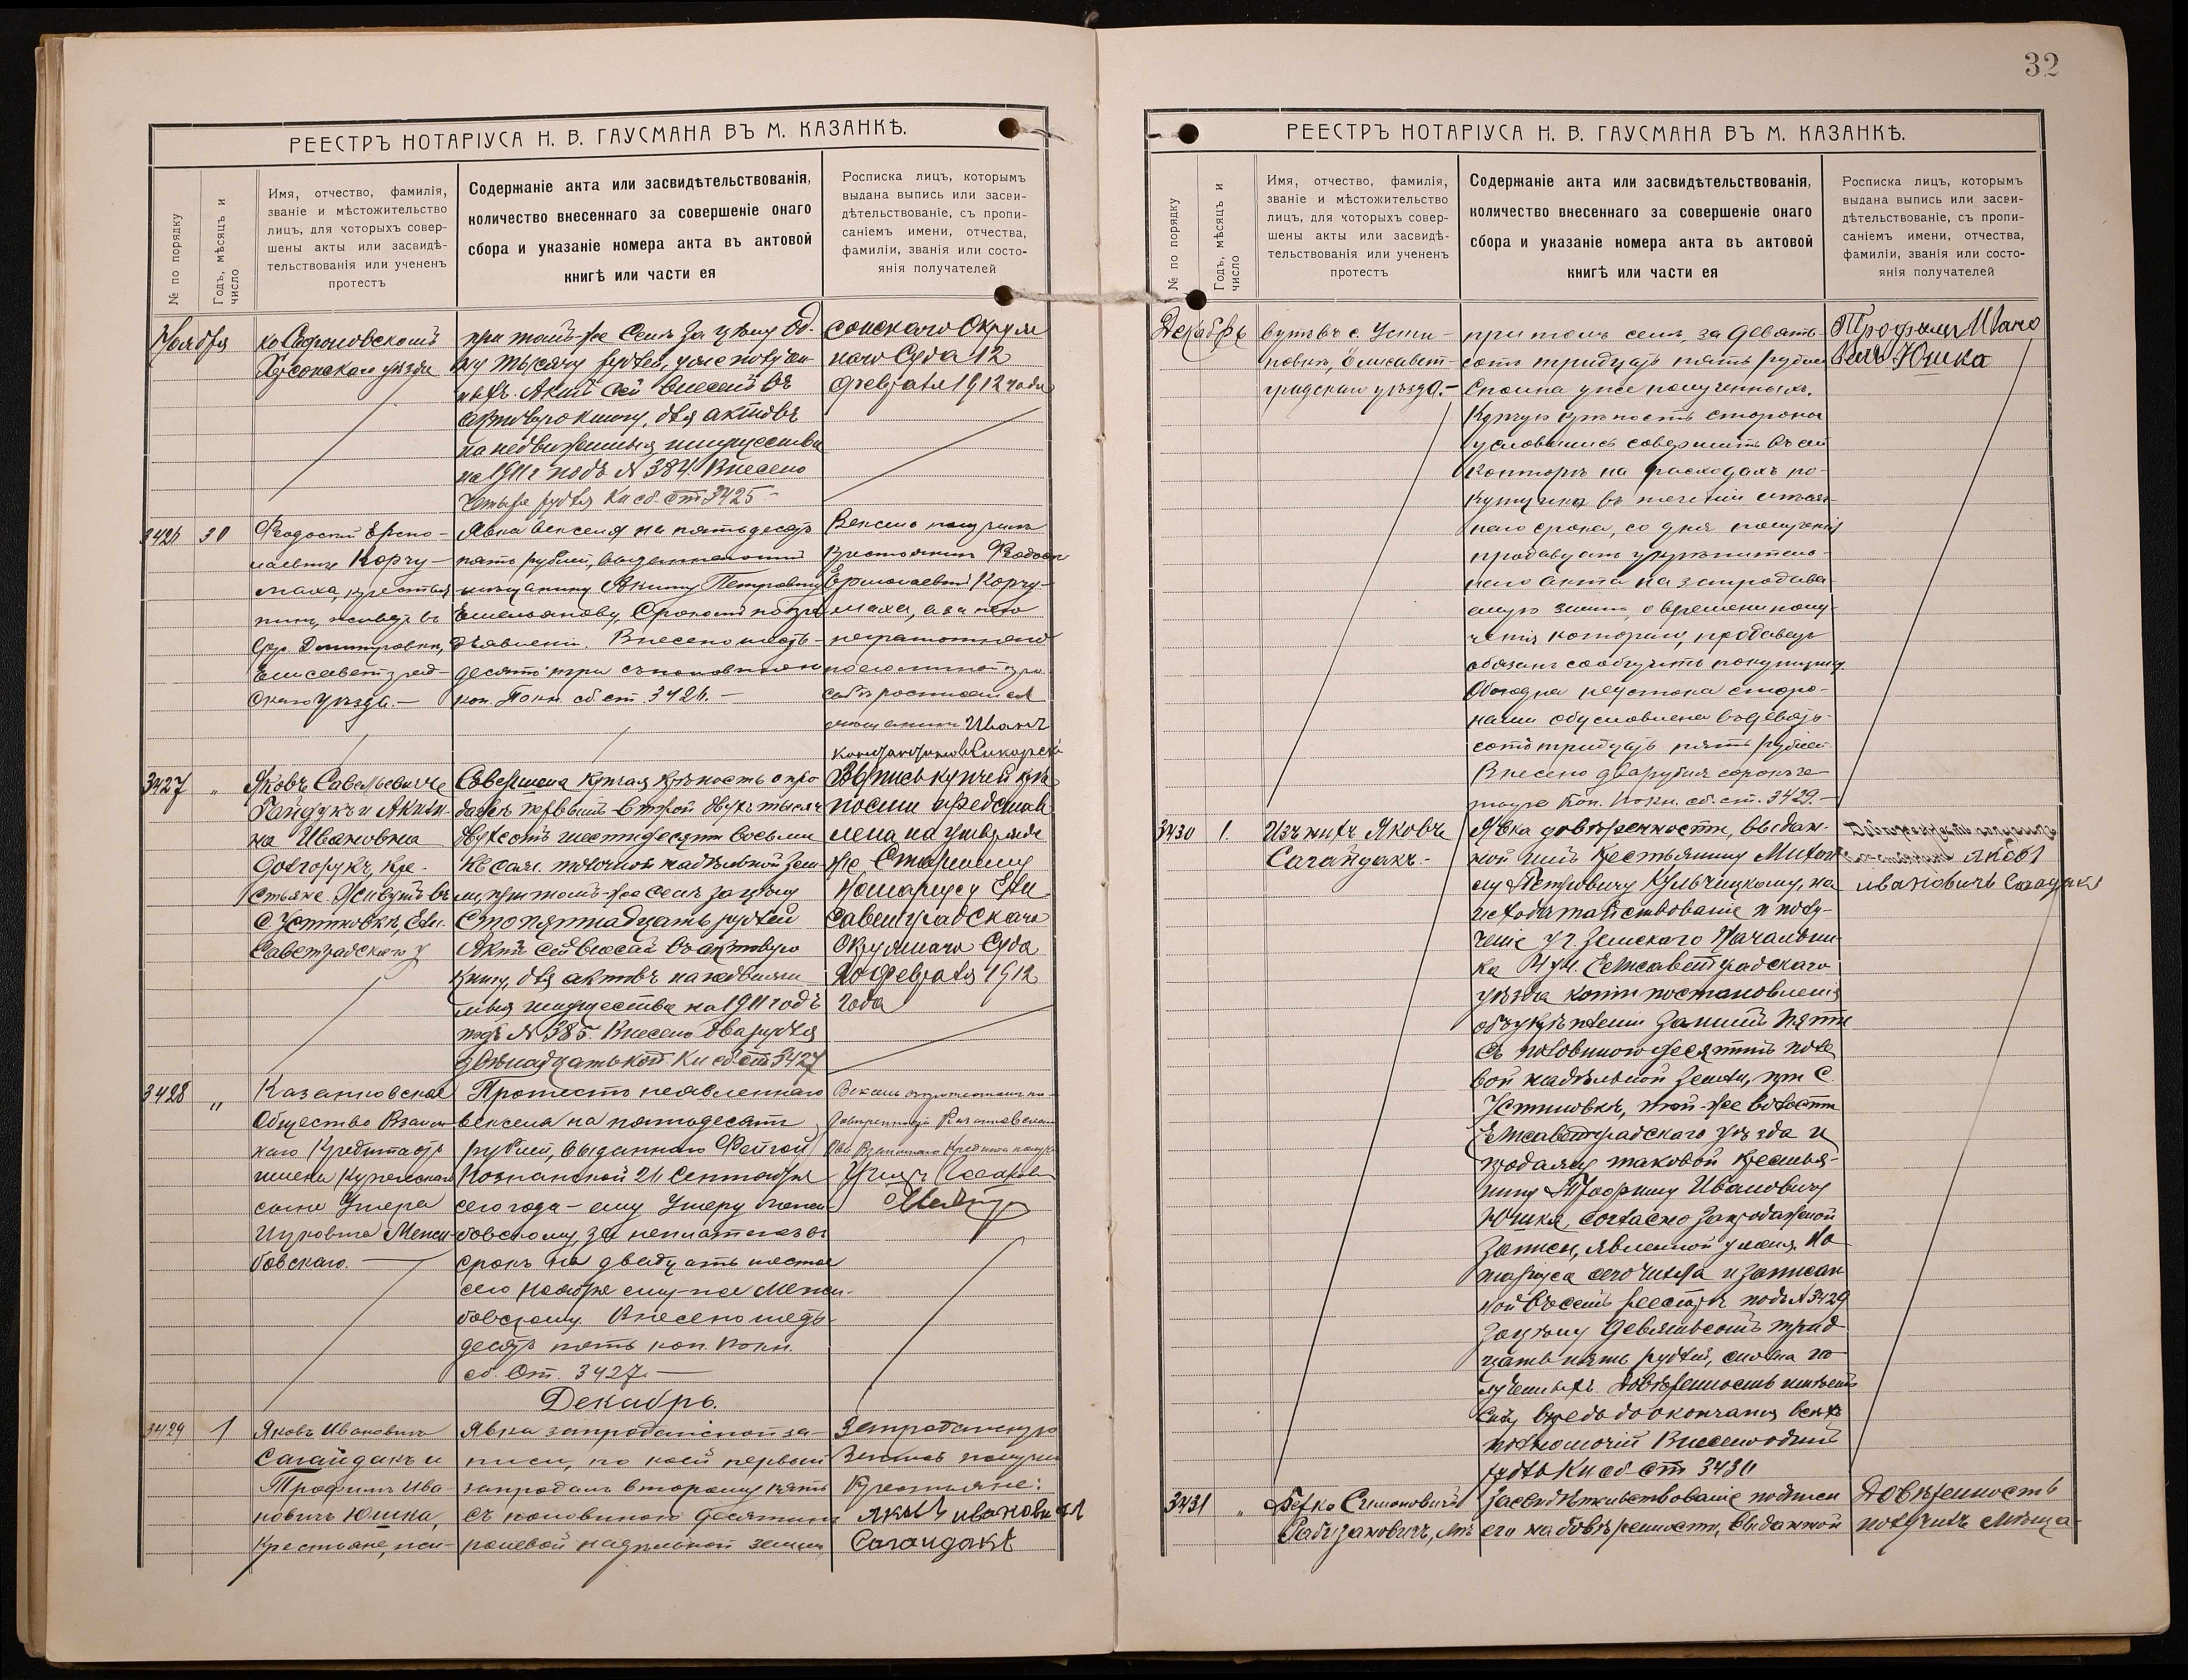 РЕЕСТРЪ НОТАРІУСА Н. В. ГАУСМАНА ВЪ М. КАЗАНКѢ.
№ по порядку
Годъ, мѣсяцъ и число
Имя, отчество, фамилія,
званіе и мѣстожительство
лицъ, для которыхъ совер-
шены акты или засвидѣ-
тельствованія или учененъ
протестъ
Содержаніе акта или засвидѣтельствованія,
количество внесеннаго за совершеніе онаго
сбора и указаніе номера акта въ актовой
книгѣ или части ея
Росписка лицъ, которымъ
выдана выпись или засви-
дѣтельствованіе, съ пропи-
саніемъ имени, отчества,
фамиліи, званія или состо-
янія получателей
Ноября
ко Сафроновскомъ
Херсонскаго уѣзда
при томъ-же селѣ за цѣну од-
ну тысячу рублей, уже получен
ныхъ. Актъ сей внесенъ въ
актовую книгу, для актовъ
на недвижимыя имущества
на 1911 г подъ № 384. Внесено
четыре рубля Кн сб. ст 3425 -
сонскаго Окруж
наго Суда 12
февраля 1912 года
3426
30
Федосій Ермо-
лаевичъ Корчу-
маха, крестья
нинъ, живетъ въ
дер. Дмитровкѣ,
Елисаветград-
скаго уѣзда. -
Явка векселя на пятьдесятъ
пять рублей, выданнаго
мѣщанину Акиму Петровичу
Емельянову, срокомъ по пред
ъявленіи. Внесено шесть-
десятъ три съ половиною
коп. Кокн. сб. ст. 3426. -
Вексель получилъ
крестьянинъ Федосій
Ермолаевичъ Корчу-
маха, а за него
неграмотнаго
по его личной прo
сьбѣ росписался
мѣщанинъ Иванъ
3427
"
Яковъ Савельевичъ
Гайдукъ и Акили-
на Ивановна
Долгорукъ, кре-
стьяне. Живутъ въ
с Устиновкѣ, Ели-
саветградскаго у
Совершена купчая крѣпость о про
дажѣ первымъ второй двухъ тысячъ
двухсотъ шестидесяти восьми
кв саж. полевой надѣльной зем
ли, при томъ-же селѣ за цѣну
сто пятнадцать рублей
Актъ сей внесенъ въ актовую
книгу, для актовъ на недвижи
мыя имущества на 1911 годъ
подъ № 385. Внесено два рубля
двѣнадцать коп. Кн сб ст 3427
Выпись купчей крѣ
пости представ
лена на утвержде
ніе Старшему
Нотаріусу Ели
саветградскаго
Окружнаго Суда
20 февраля 1912
года
3428
"
Казанковское
Общество Взаим
наго Кредита отъ
имени Купеческаго
сына Умера
Ицковича Менжи-
бовскаго. -
Протестъ неявленнаго
векселя на пятьдесятъ
рублей, выданнаго Фейгой
Познанской 26 сентября
сего года - ему Умеру Менжи
бовскому, за неплатежъ въ
срокъ на двадцать шестое
сего ноября ему-же Менжи-
бовскому. Внесено шесть-
десятъ пять коп. Кокн.
сб. ст. 3427. -
Декабрь.
3429
1
Яковъ Ивановичъ
Сагайдакъ и
Трофимъ Ива-
новичъ Юшка,
Крестьяне, жи-
Явка запродажной за-
писи, по коей первый
запродалъ второму пять
съ половиною десятинъ
полевой надѣльной земли,
Запродажную
запись получили
Крестьяне:
Яковъ ивановичъ
Сагайдакъ
32
РЕЕСТРЪ НОТАРІУСА Н. В. ГАУСМАНА ВЪ М. КАЗАНКѢ.
№ по порядку
Годъ, мѣсяцъ и число
Имя, отчество, фамилія,
званіе и мѣстожительство
лицъ, для которыхъ совер-
шены акты или засвидѣ-
тельствованія или учененъ
протестъ
Содержаніе акта или засвидѣтельствованія,
количество внесеннаго за совершеніе онаго
сбора и указаніе номера акта въ актовой
книгѣ или части ея
Росписка лицъ, которымъ
выдана выпись или засви-
дѣтельствованіе, съ пропи-
саніемъ имени, отчества,
фамиліи, званія или состо-
янія получателей
Декабрь
вутъ въ с. Усти-
новкѣ, Елисавет-
градскаго уѣзда. -
при томъ селѣ, за девять-
сотъ тридцать пять рублей
сполна уже полученныхъ.
Купчую крѣпость стороны
условились совершить въ сей
конторѣ на расходахъ по-
купщика въ теченіи
наго срока, со дня полученія
продавцомъ укрѣпитель-
наго акта на запродава-
емую землю, о времени полу-
ченія котораго, продавецъ
обязанъ сообщить покупщику.
Обоюдная неустойка сторо-
нами обусловлена въ девять-
сотъ тридцать пять рублей
Внесено два рубля сорокъ че-
тыре коп. Кокн. сб. ст. 3429. -
Трофимъ Ивано
вичъ Юшка
3430
1.
Изъ нихъ Яковъ
Сагайдакъ. -
Явка довѣренности, выдан-
ной имъ Крестьянину
му Петровичу Кульчицкому, на
исходатайствованіе и полу-
ченіе у г. Земскаго Начальни-
ка 4 уч. Елисаветградскаго
уѣзда копіи постановленія
объ укрѣпленіи за нимъ пяти
съ половиною десятинъ поле
вой надѣльной земли, при с.
Устиновкѣ, той-же волости
Елисаветградскаго уѣзда и
продажу таковой крестья-
нину Трофиму Ивановичу
Юшкѣ, согласно запродажной
записи, явленной у меня, Но
таріуса сего числа и записан
ной въ семъ реестрѣ подъ № 3429
за цѣну девятьсотъ трид
цать пять рублей, сполна по
лученныхъ. Довѣренность имѣетъ
силу впредь до окончанія всѣхъ
полномочій Внесено одинъ
рубль Кн сб ст 3430
Довѣренность получилъ
Яковъ
ивановичъ Сагайдакъ
3431
"
Берко Симоновичъ
Рабиновичъ, мѣ
Засвидѣтельствованіе подписи
его на довѣренности, выданной
Довѣренность
получилъ мѣща-